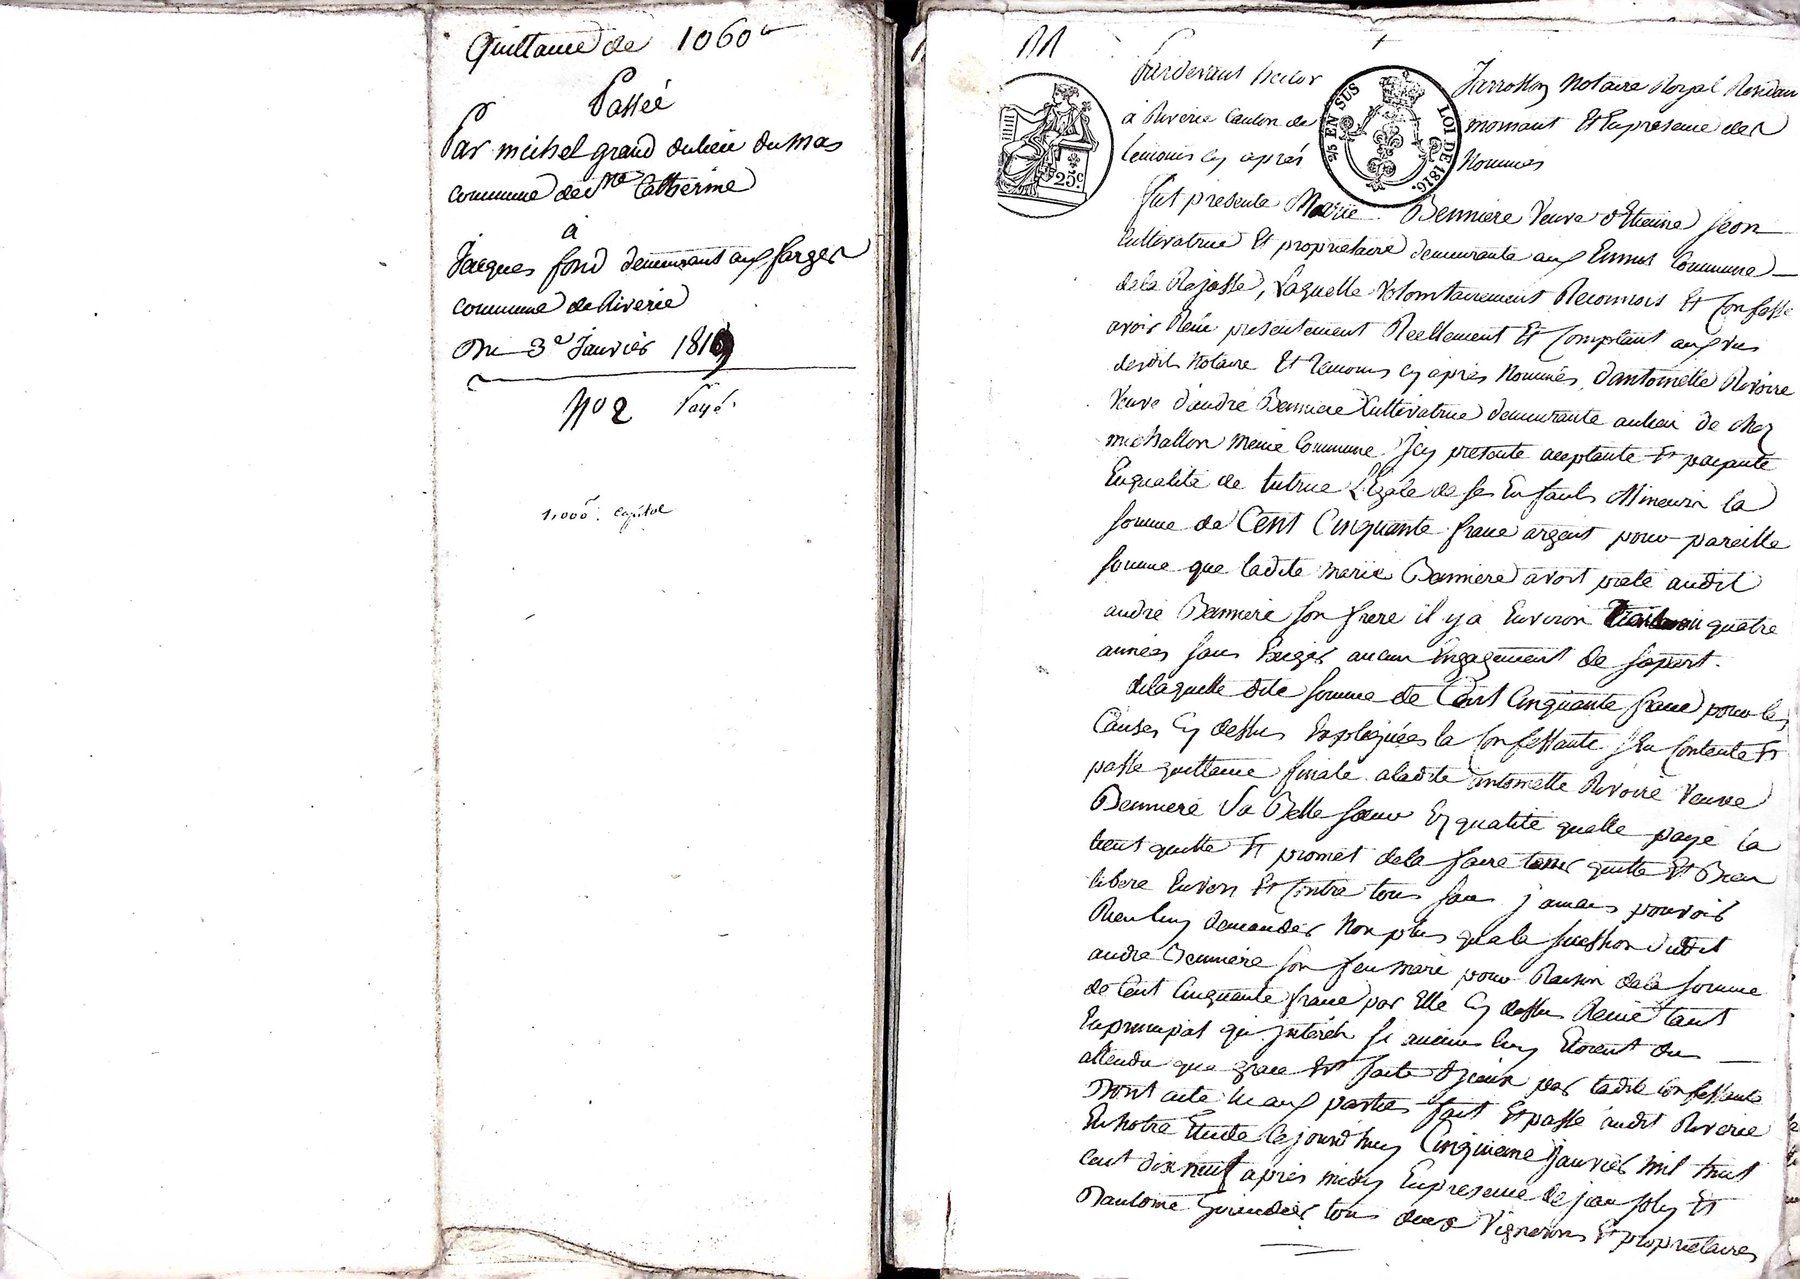 Quittance de 1060#
Passée
Par michel grand dulieu du mas
commune de Ste Catherine
à
Jacques fond demeurant aux farges
commune de Riverie
Du 3e Janvier 1819
No 2 Payé.
1,000#. capital
Pardevant hector Jarrosson Notaire Royal Residant
à Riverie Canton de mornant Et En presence des
temoins cy après Nommés
2/5 EN SUS
LOI DE 1816.
25c.
fut presente Marie Bennière Veuve d'Etienne jeon
Cultivatrice Et proprietaire demeurante aux Commune
dela Rajasse, Laquelle Volontairement Reconnois Et Confesse
avoir Reçu presentement Reellement Et Comptant aux vus
desdits Notaire Et temoins cy après Nommés, d'antoinette Rivoire
Veuve d'andré Bennière Cultivatrice demeurante aulieu de chez
michallon meme Commune Icy presente acceptante Et payante
Enqualité de tutrice Légale de ses Enfants Mineurs la
somme de Cent Cinquante franc argent pour pareille
somme que ladite marie Bennière avoit preté audit
andré Bennière son frere il y a Environ quatre
années sans Exiger aucun Engagement de sa part.
delaquelle dite somme de Cent Cinquante franc pour les
Causes Cy dessus Expliquées la Confessante s'En Contente Et
passe quittance finale a ladite antoinette Rivoire Veuve
Bennière Sa Belle sœur En qualité quelle paye la
tient quitte Et promet dela faire tenir quitte Et Bien
libere Envers Et Contre tous sans jamais pouvoir
Rien luy demander Non plus qua la succession dudit
andré Bennière son feu mari pour Raison dela somme
de Cent Cinquante franc par Elle Cy dessus Recue tant
En principal qu'jnterets si aucuns luy Etoient dus
attendu que grace Est faite d'jceux par ladite Confessante
Dont acte lu aux parties fait Et passé audit Riverie
En Notre Etude Cejourd'huy Cinquieme janvier mil huit
cent dix neuf après midy En presence de jean joly Et
tous deux Vignerons Et proprietaires